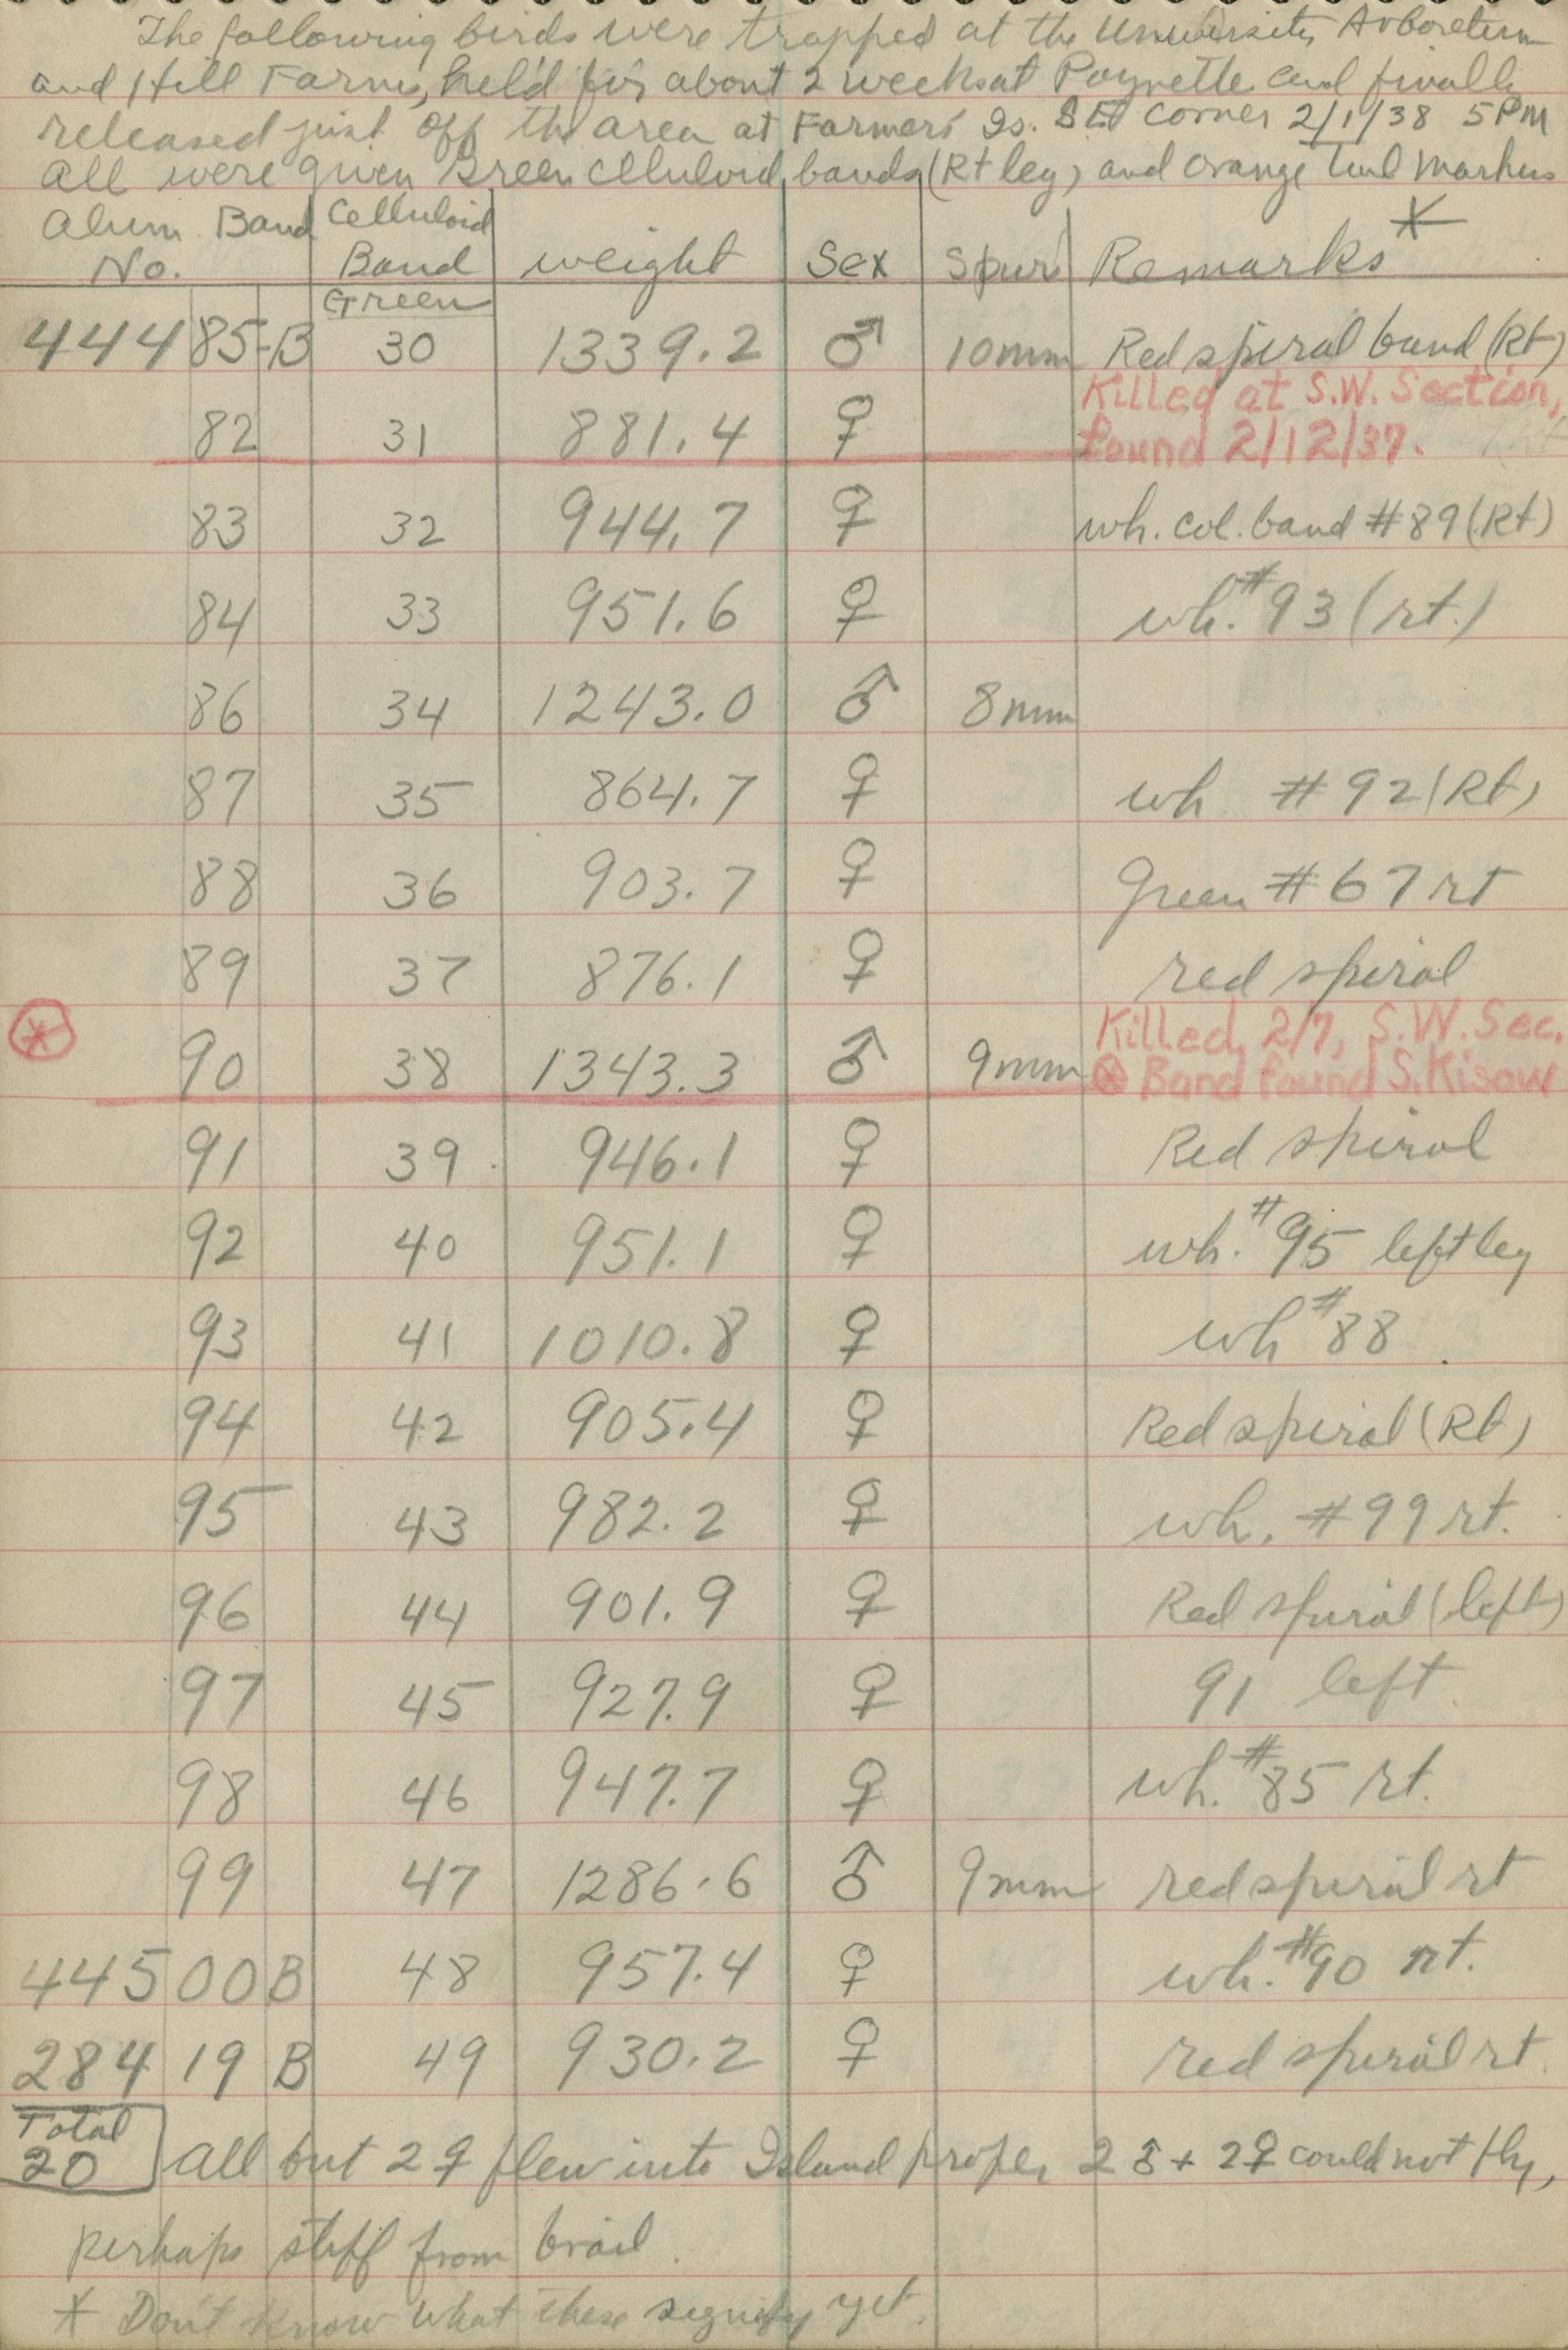 The following birds were trapped at the University Arboretum
and Hill Farms, held for about 2 weeks at Poynette and finally
released just off the area at Farmers Is. SE corner 2/1/38 5PM
All were given Green celluloid bands (Rt leg) and orange tail markers
Alum. Band No. Celluloid Band Green weight Sex Spurs Remarks *
444 85-B 30 1339.2 ♂ 10mm Red spiral band (Rt)
Killed at S.W. Section,
82 31 881.4 ♀ found 2/12/37.
83 32 944.7 ♀ wh. col. band #89 (Rt)
84 33 951.6 ♀ wh. #93 (rt.)
86 34 1243.0 ♂ 8mm
87 35 864.7 ♀ wh #92 (Rt)
88 36 903.7 ♀ Green #67 rt
89 37 876.1 ♀ red spiral
Killed, 2/7, S.W. Sec.
⊛ 90 38 1343.3 ♂ 9mm ⊛ Band found S. Kisow
91 39 946.1 ♀ Red spiral
92 40 951.1 ♀ wh. #95 left leg
93 41 1010.8 ♀ wh #88
94 42 905.4 ♀ Red spiral (Rt)
95 43 982.2 ♀ wh. #99 rt.
96 44 901.9 ♀ Red spiral (left)
97 45 927.9 ♀ 91 left
98 46 947.7 ♀ wh. #85 rt.
99 47 1286.6 ♂ 9mm red spiral rt
445 00 B 48 957.4 ♀ wh. #90 rt.
284 19 B 49 930.2 ♀ red spiral rt.
Total
20 All but 2♀ flew into Island proper 2♂ + 2♀ could not fly,
perhaps stiff from brail.
* Don't know what these signify yet.